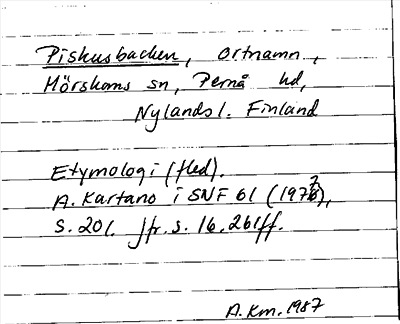 Piskusbacken, ortnamn,
Mörskoms sn, Pernå hd,
Nylands l. Finland
Etymologi (fled).
A. Kartano i SNF 61 (1972),
s. 201. Jfr. s. 16, 261ff.
A.Km. 1987